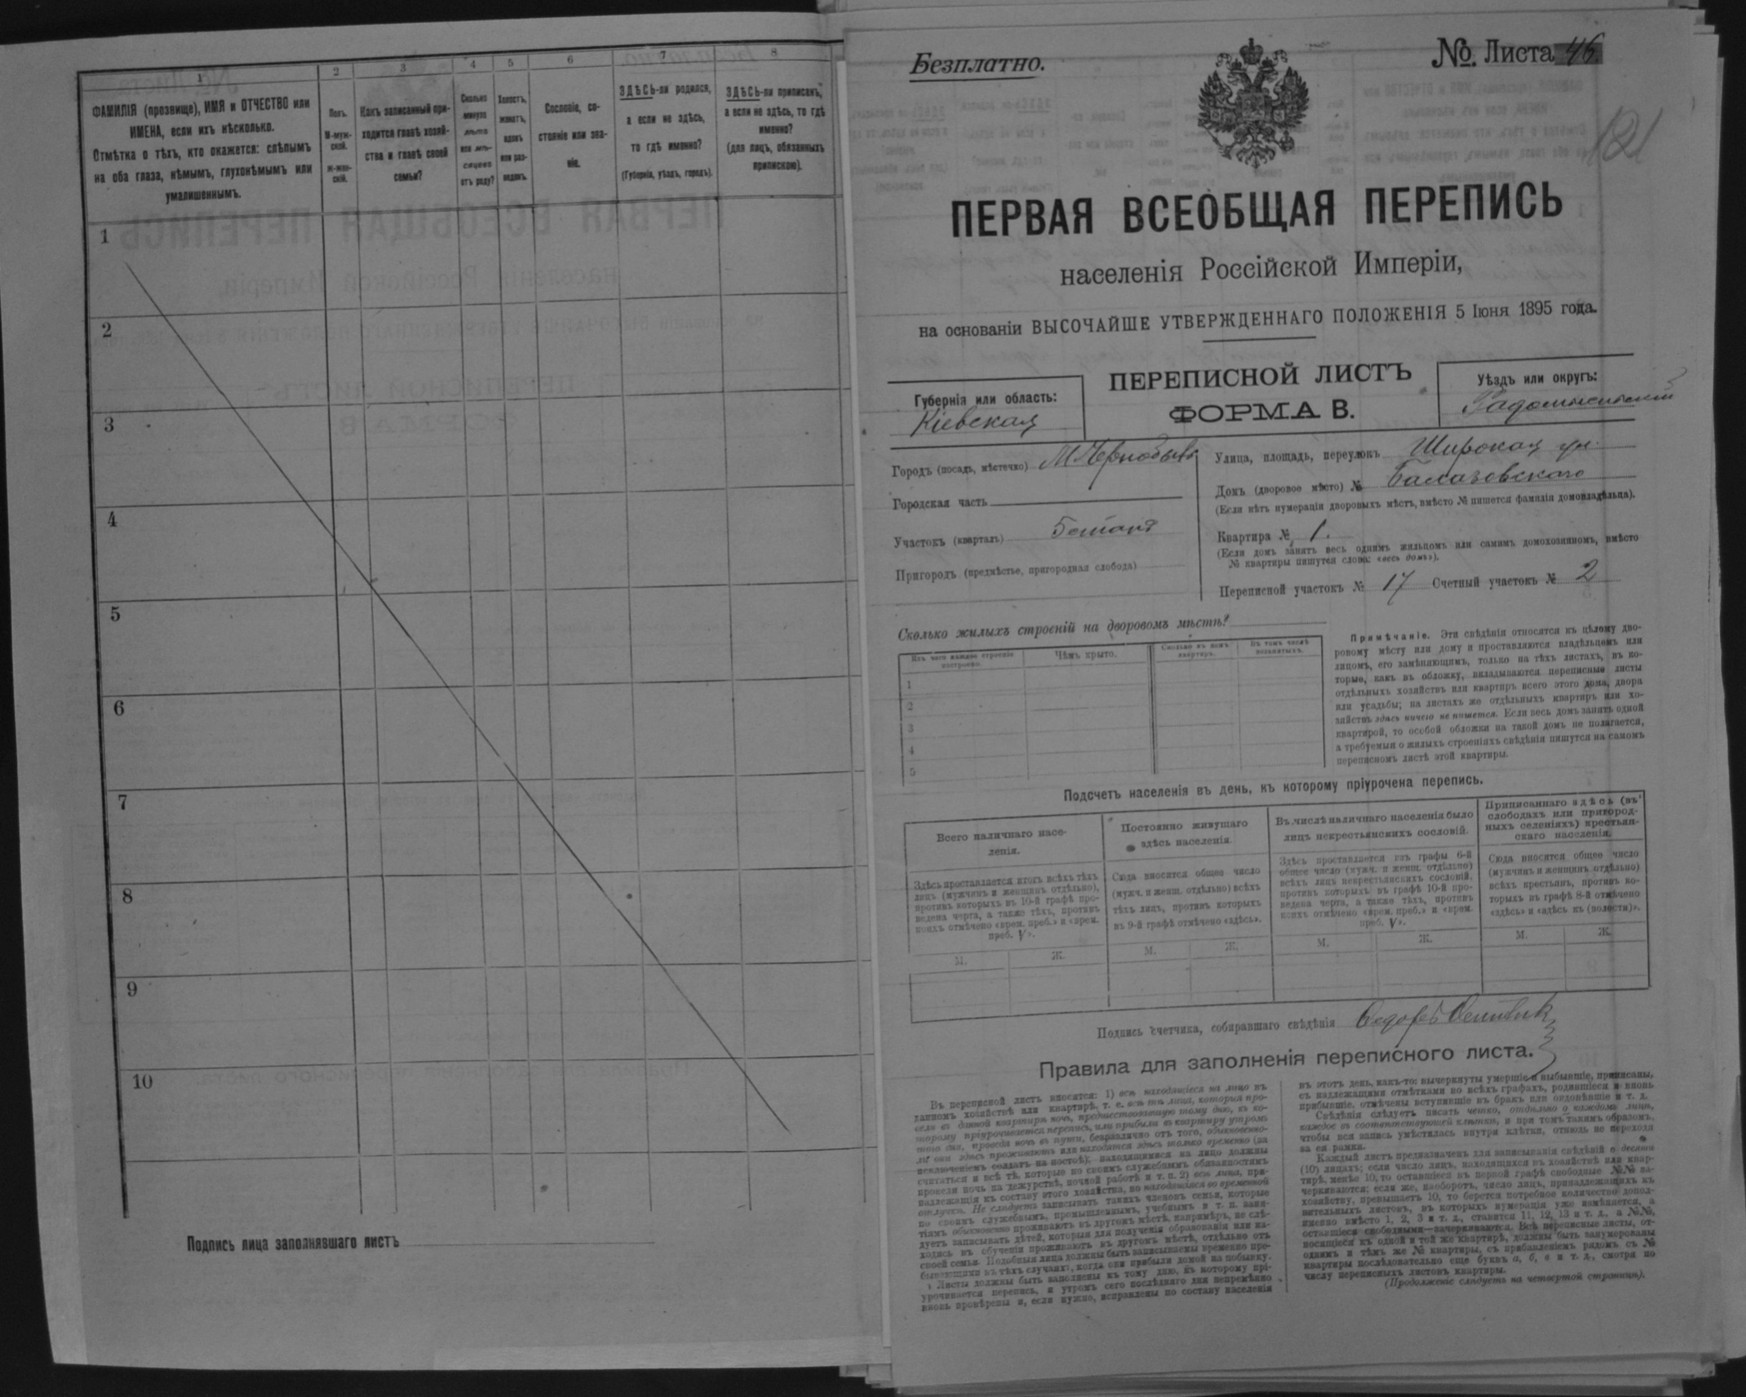 1
2
3
4
5
6
7
8
ФАМИЛІЯ (прозвище), ИМЯ и ОТЧЕСТВО или
ИМЕНА, если ихъ нѣсколько.
Отмѣтка о тѣхъ, кто окажется: слѣпымъ
на оба глаза, нѣмымъ, глухонѣмымъ или
умалишеннымъ.
Полъ.
М-муж-
ской.
ж-жен-
скій.
Какъ записанный при-
ходится главѣ хозяй-
ства и главѣ своей
семьи?
Сколько
минуло
лѣтъ
или мѣ-
сяцевъ
отъ роду?
Холостъ,
женатъ,
вдовъ
или раз-
веденъ.
Сословіе, со-
стояніе или зва-
ніе.
ЗДѢСЬ-ли родился,
а если не здѣсь,
то гдѣ именно?
(Губернія, уѣздъ, городъ).
ЗДѢСЬ-ли приписанъ,
а если не здѣсь, то гдѣ
именно?
(для лицъ, обязанныхъ
припискою).
1
2
3
4
5
6
7
8
9
10
Подпись лица заполнявшаго листъ
Безплатно.
№ Листа 46
121
ПЕРВАЯ ВСЕОБЩАЯ ПЕРЕПИСЬ
населенія Россійской Имперіи,
на основаніи ВЫСОЧАЙШЕ УТВЕРЖДЕННАГО ПОЛОЖЕНІЯ 5 Іюня 1895 года.
Губернія или область:
Кіевская
ПЕРЕПИСНОЙ ЛИСТЪ
ФОРМА В.
Уѣздъ или округъ:
Радомысльскій
Городъ (посадъ, мѣстечко) М. Чернобыль
Городская часть
Участокъ (кварталъ)
Пригородъ (предмѣстье, пригородная слобода)
Улица, площадь, переулокъ Широкая ул.
Домъ (дворовое мѣсто) №
(Если нѣтъ нумераціи дворовыхъ мѣстъ, вмѣсто № пишется фамилія домовладѣльца).
Квартира № 1.
(Если домъ занятъ весь однимъ жильцомъ или самимъ домохозяиномъ, вмѣсто
№ квартиры пишутся слова: «весь домъ»).
Переписной участокъ № 17 Счетный участокъ № 2
Сколько жилыхъ строеній на дворовомъ мѣстѣ?
Изъ чего каждое строеніе
построено.
Чѣмъ крыто.
Сколько въ немъ
квартиръ.
Въ томъ числѣ
незанятыхъ.
1
2
3
4
5
Примѣчаніе. Эти свѣдѣнія относятся къ цѣлому дво-
ровому мѣсту или дому и проставляются владѣльцемъ или
лицомъ, его замѣняющимъ, только на тѣхъ листахъ, въ ко-
торые, какъ въ обложку, вкладываются переписные листы
отдѣльныхъ хозяйствъ или квартиръ всего этого дома, двора
или усадьбы; на листахъ же отдѣльныхъ квартиръ или хо-
зяйствъ здѣсь ничего не пишется. Если весь домъ занятъ одной
квартирой, то особой обложки на такой домъ не полагается,
а требуемыя о жилыхъ строеніяхъ свѣдѣнія пишутся на самомъ
переписномъ листѣ этой квартиры.
Подсчетъ населенія въ день, къ которому пріурочена перепись.
Всего наличнаго насе-
ленія.
Здѣсь проставляется итогъ всѣхъ тѣхъ
лицъ (мужчинъ и женщинъ отдѣльно),
противъ которыхъ въ 10-й графѣ про-
ведена черта, а также тѣхъ, противъ
коихъ отмѣчено «врем. преб.» и «врем.
преб. V».
М.
Ж.
Постоянно живущаго
здѣсь населенія.
Сюда вносится общее число
(мужч. и женщ. отдѣльно) всѣхъ
тѣхъ лицъ, противъ которыхъ
въ 9-й графѣ отмѣчено «здѣсь».
М.
Ж.
Въ числѣ наличнаго населенія было
лицъ некрестьянскихъ сословій.
Здѣсь проставляется изъ графы 6-й
общее число (мужч. и женщ. отдѣльно)
всѣхъ лицъ некрестьянскихъ сословій,
противъ которыхъ въ графѣ 10-й про-
ведена черта, а также тѣхъ, противъ
коихъ отмѣчено «врем. преб.» и «врем.
преб. V».
М.
Ж.
Приписаннаго здѣсь (въ
слободахъ или пригород-
ныхъ селеніяхъ) крестьян-
скаго населенія.
Сюда вносится общее число
(мужчинъ и женщинъ отдѣльно)
всѣхъ крестьянъ, противъ ко-
торыхъ въ графѣ 8-й отмѣчено
«здѣсь» и «здѣсь къ (волости)».
М.
Ж.
Подпись счетчика, собиравшаго свѣдѣнія
Правила для заполненія переписного листа.
Въ переписной листъ вносятся: 1) всѣ находящіеся на лицо въ
данномъ хозяйствѣ или квартирѣ, т. е. всѣ тѣ лица, которыя про-
вели въ данной квартирѣ ночь, предшествовавшую тому дню, къ ко-
торому пріурочивается перепись, или прибыли въ квартиру утромъ
того дня, проведя ночь въ пути, безразлично отъ того, обыкновенно-
ли они здѣсь проживаютъ или находятся здѣсь только временно (за
исключеніемъ солдатъ на постоѣ); находящимися на лицо должны
считаться и всѣ тѣ, которые по своимъ служебнымъ обязанностямъ
провели ночь на дежурствѣ, ночной работѣ и т. п. 2) всѣ лица, при-
надлежащія къ составу этого хозяйства, но находящіяся во временной
отлучкѣ. Не слѣдуетъ записывать такихъ членовъ семьи, которые
по своимъ служебнымъ, промышленнымъ, учебнымъ и т. п. заня-
тіямъ обыкновенно проживаютъ въ другомъ мѣстѣ, напримѣръ, не слѣ-
дуетъ записывать дѣтей, которыя для полученія образованія или на-
ходясь въ обученіи проживаютъ въ другомъ мѣстѣ, отдѣльно отъ
своей семьи. Подобныя лица должны быть записываемы временно пре-
бывающими въ тѣхъ случаяхъ, когда они прибыли домой на побывку.
Листы должны быть заполнены къ тому дню, къ которому прі-
урочивается перепись, и утромъ сего послѣдняго дня непремѣнно
вновь провѣрены и, если нужно, исправлены по составу населенія
въ этотъ день, какъ-то: вычеркнуты умершіе и выбывшіе, приписаны,
съ надлежащими отмѣтками во всѣхъ графахъ, родившіеся и вновь
прибывшіе, отмѣчены вступившіе въ бракъ или овдовѣвшіе и т. д.
Свѣдѣнія слѣдуетъ писать четко, отдѣльно о каждомъ лицѣ,
каждое въ соотвѣтствующей клѣткѣ, и при томъ такимъ образомъ,
чтобы вся запись умѣстилась внутри клѣтки, отнюдь не переходя
за ея рамки.
Каждый листъ предназначенъ для записыванія свѣдѣній о десяти
(10) лицахъ; если число лицъ, находящихся въ хозяйствѣ или квар-
тирѣ, менѣе 10, то оставшіеся въ первой графѣ свободные №№ за-
черкиваются; если же, наоборотъ, число лицъ, принадлежащихъ къ
хозяйству, превышаетъ 10, то берется потребное количество допол-
нительныхъ листовъ, въ которыхъ нумерація уже измѣняется, а
именно вмѣсто 1, 2, 3 и т. д., ставятся 11, 12, 13 и т. д., а №№,
оставшіеся свободными—зачеркиваются. Всѣ переписные листы, от-
носящіеся къ одной и той же квартирѣ, должны быть занумерованы
однимъ и тѣмъ же № квартиры, съ прибавленіемъ рядомъ съ №
квартиры послѣдовательно еще буквъ а, б, в и т. д., смотря по
числу переписныхъ листовъ квартиры.
(Продолженіе слѣдуетъ на четвертой страницѣ).